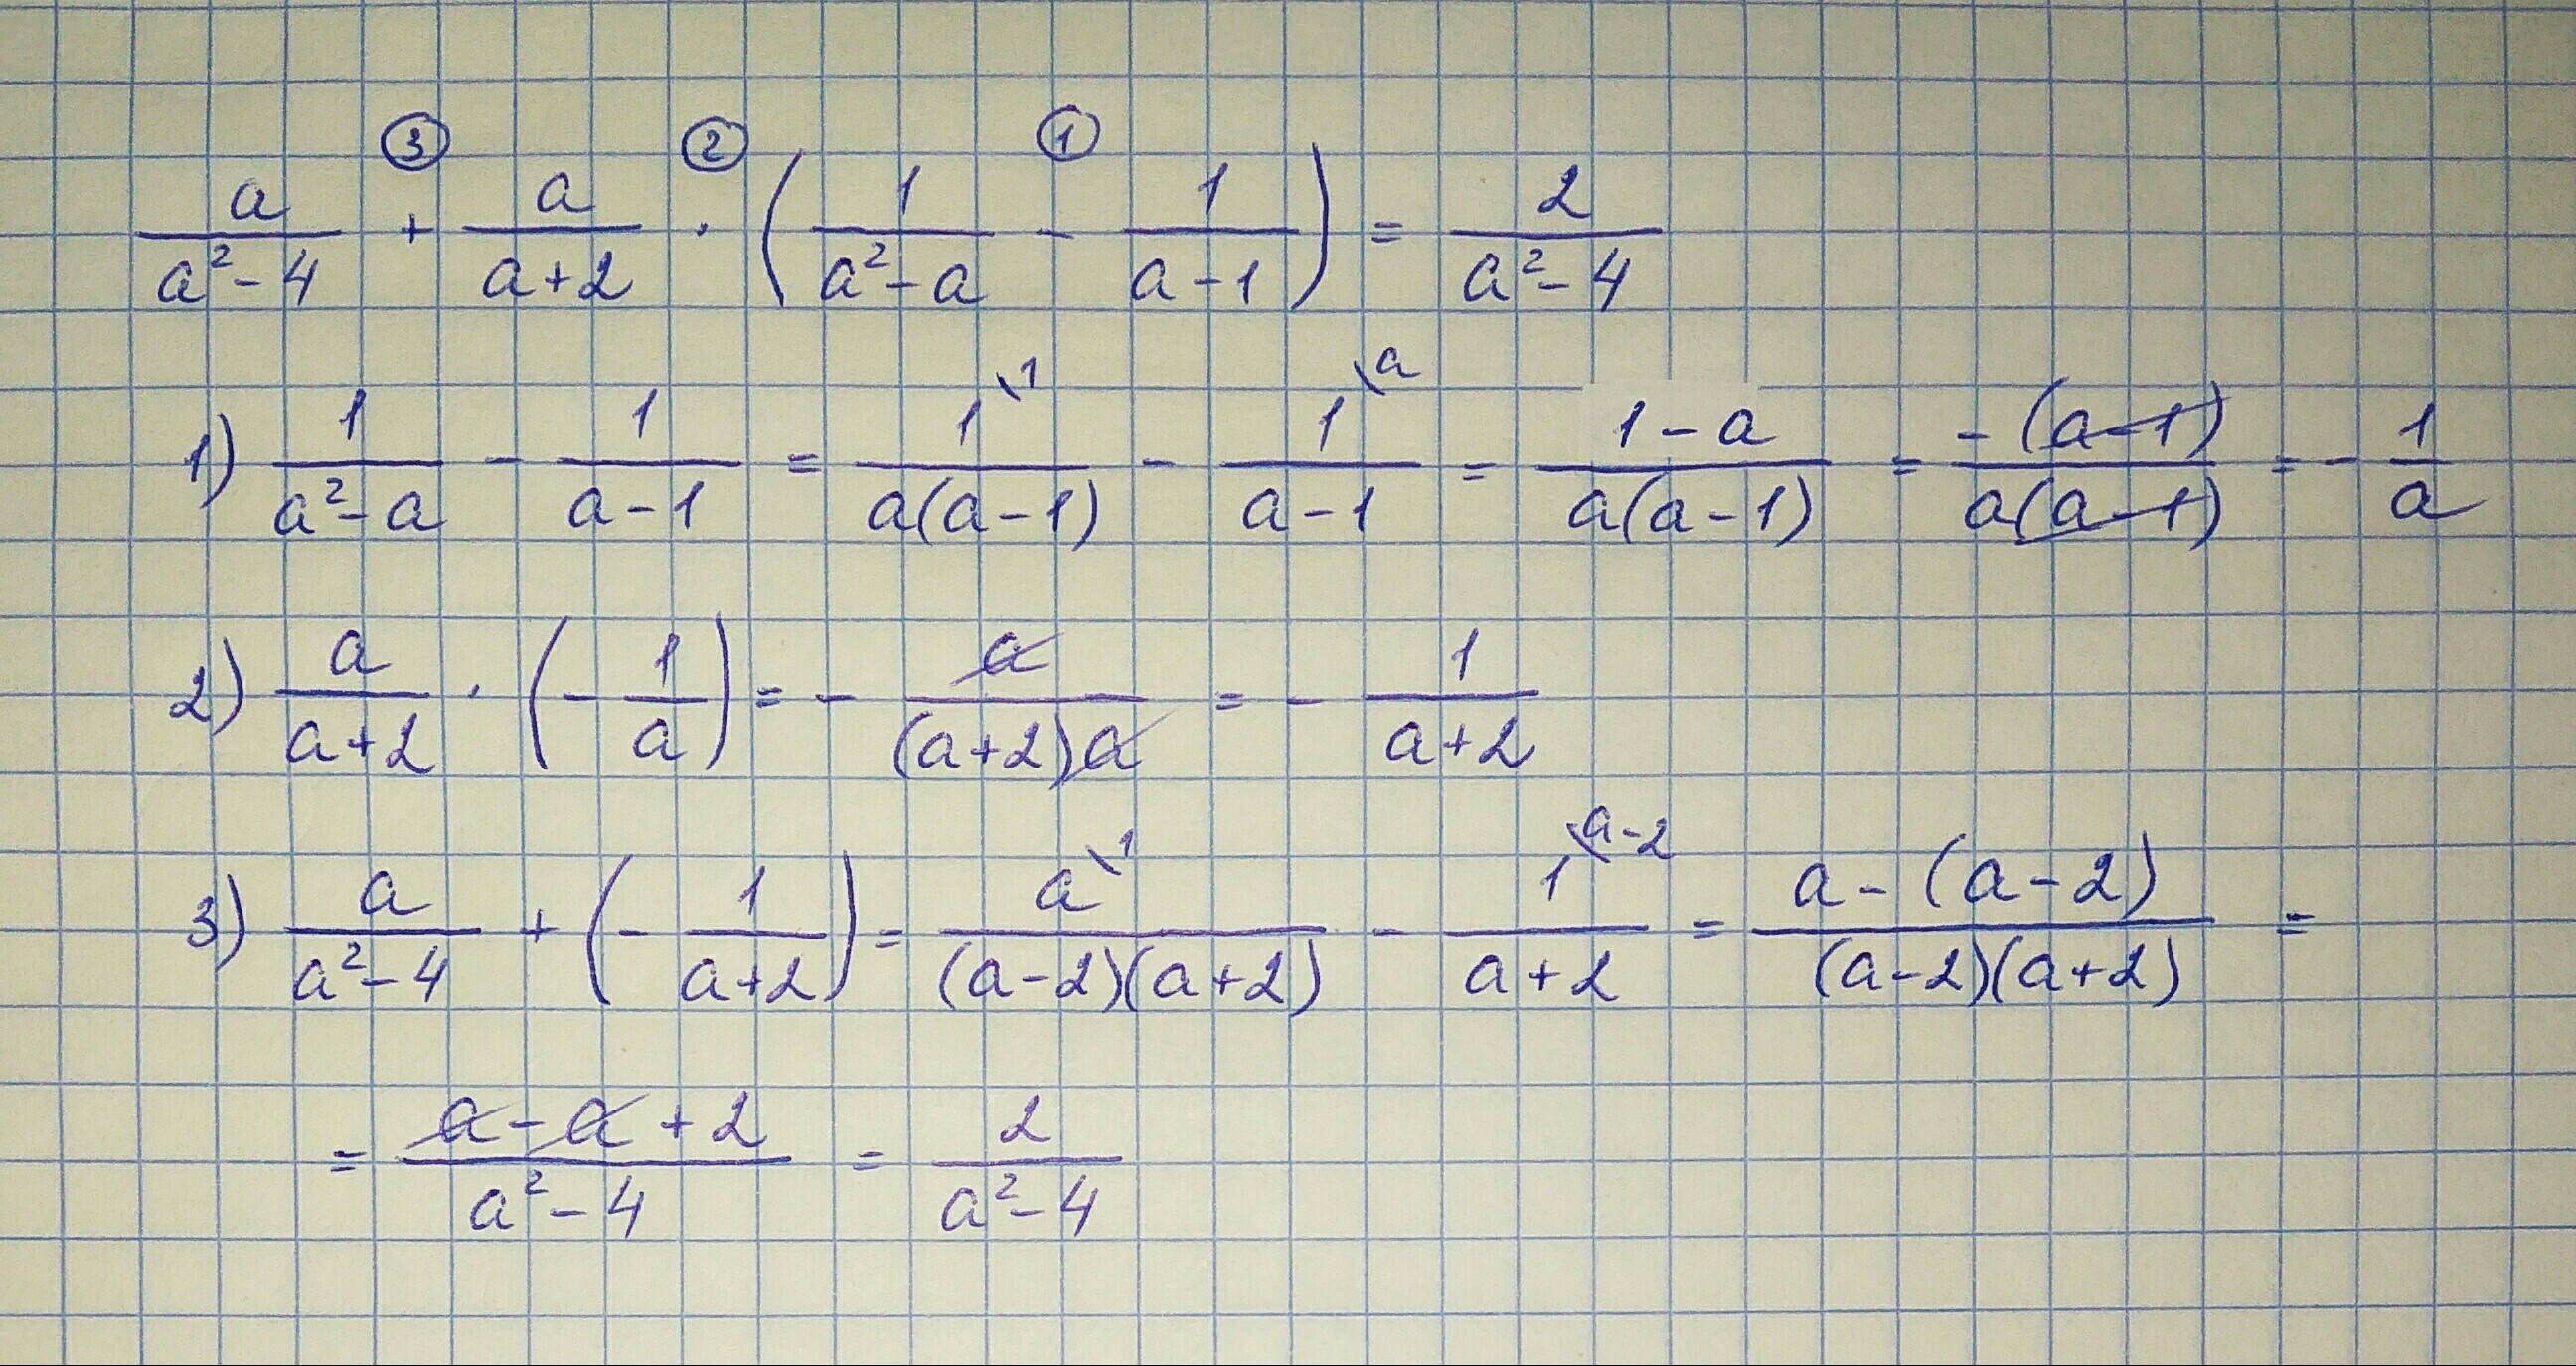 ③ ② ①
a/(a²-4) + a/(a+2) · (1/(a²-a) - 1/(a-1)) = 2/(a²-4)
1) 1/(a²-a) - 1/(a-1) = 1\1/(a(a-1)) - 1\a/(a-1) = (1-a)/(a(a-1)) = -(a-1)/(a(a-1)) = - 1/a
2) a/(a+2) · (- 1/a) = - a/((a+2)a) = - 1/(a+2)
3) a/(a²-4) + (- 1/(a+2)) = a\1/((a-2)(a+2)) - 1\a-2/(a+2) = (a-(a-2))/((a-2)(a+2)) =
= (a-a+2)/(a²-4) = 2/(a²-4)